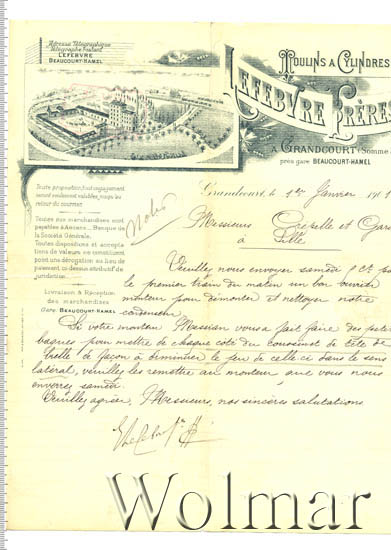 Adresse Télégraphique
Télégraphe Postant
LEFEBVRE
BEAUCOURT-HAMEL
MOULINS A CYLINDRES
LEFEBVRE FRÈRES
A GRANDCOURT (Somme
près gare BEAUCOURT-HAMEL
Grandcourt, le 1er Janvier 191
Toute proposition, tout engagement
seront seulement valables jusqu'au
retour du courrier.
Toutes nos marchandises sont
payables à
Banque de
la Société Générale.
Toutes dispositions et accepta
tions de valeurs ne constituent
pas une dérogation au lieu de
paiement, ci dessus attributif de
juridiction.
Livraison & Réception
des marchandises
Gare: BEAUCOURT-HAMEL
Noté
Messieurs Crepelle et Gar
à Lille
Veuillez nous envoyer samedi pa
le premier train du matin un bon ouvrier
monteur pour démonter et nettoyer notre
condenseur.
Si votre monteur Massian vous a fait faire des petites
bagues pour mettre de chaque côté du coussinet de tête de
bielle de façon à diminuer le jeu de celle ci dans le sens
latéral, veuillez les remettre au monteur que vous nous
enverrez samedi.
Veuillez agréer, Messieurs, nos sincères salutations
Wolmar